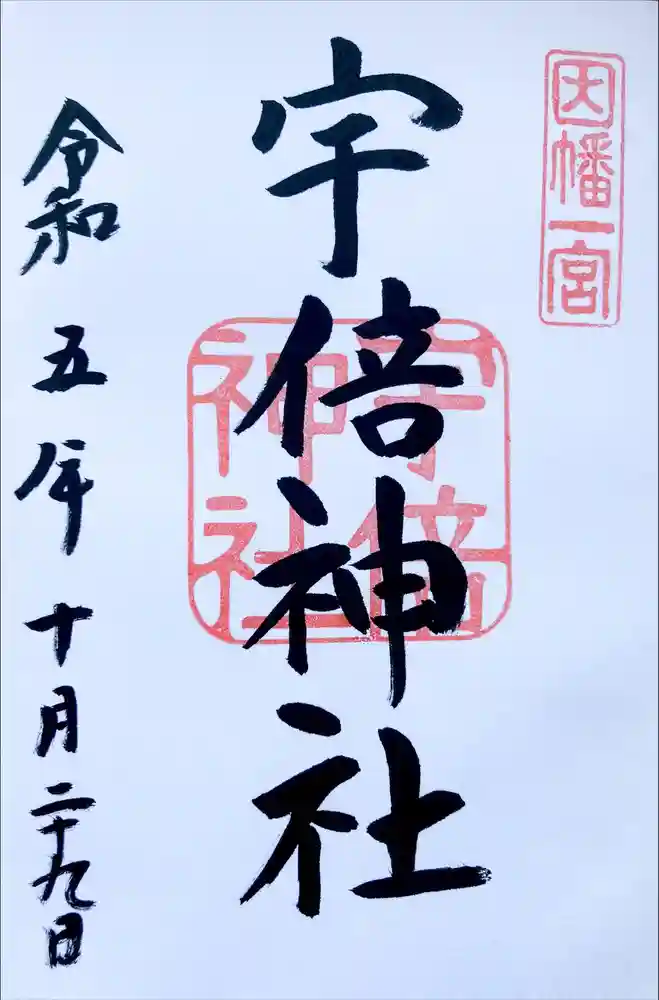 因幡一宮
宇倍神社
宇倍
神社
令和五年十月二十九日